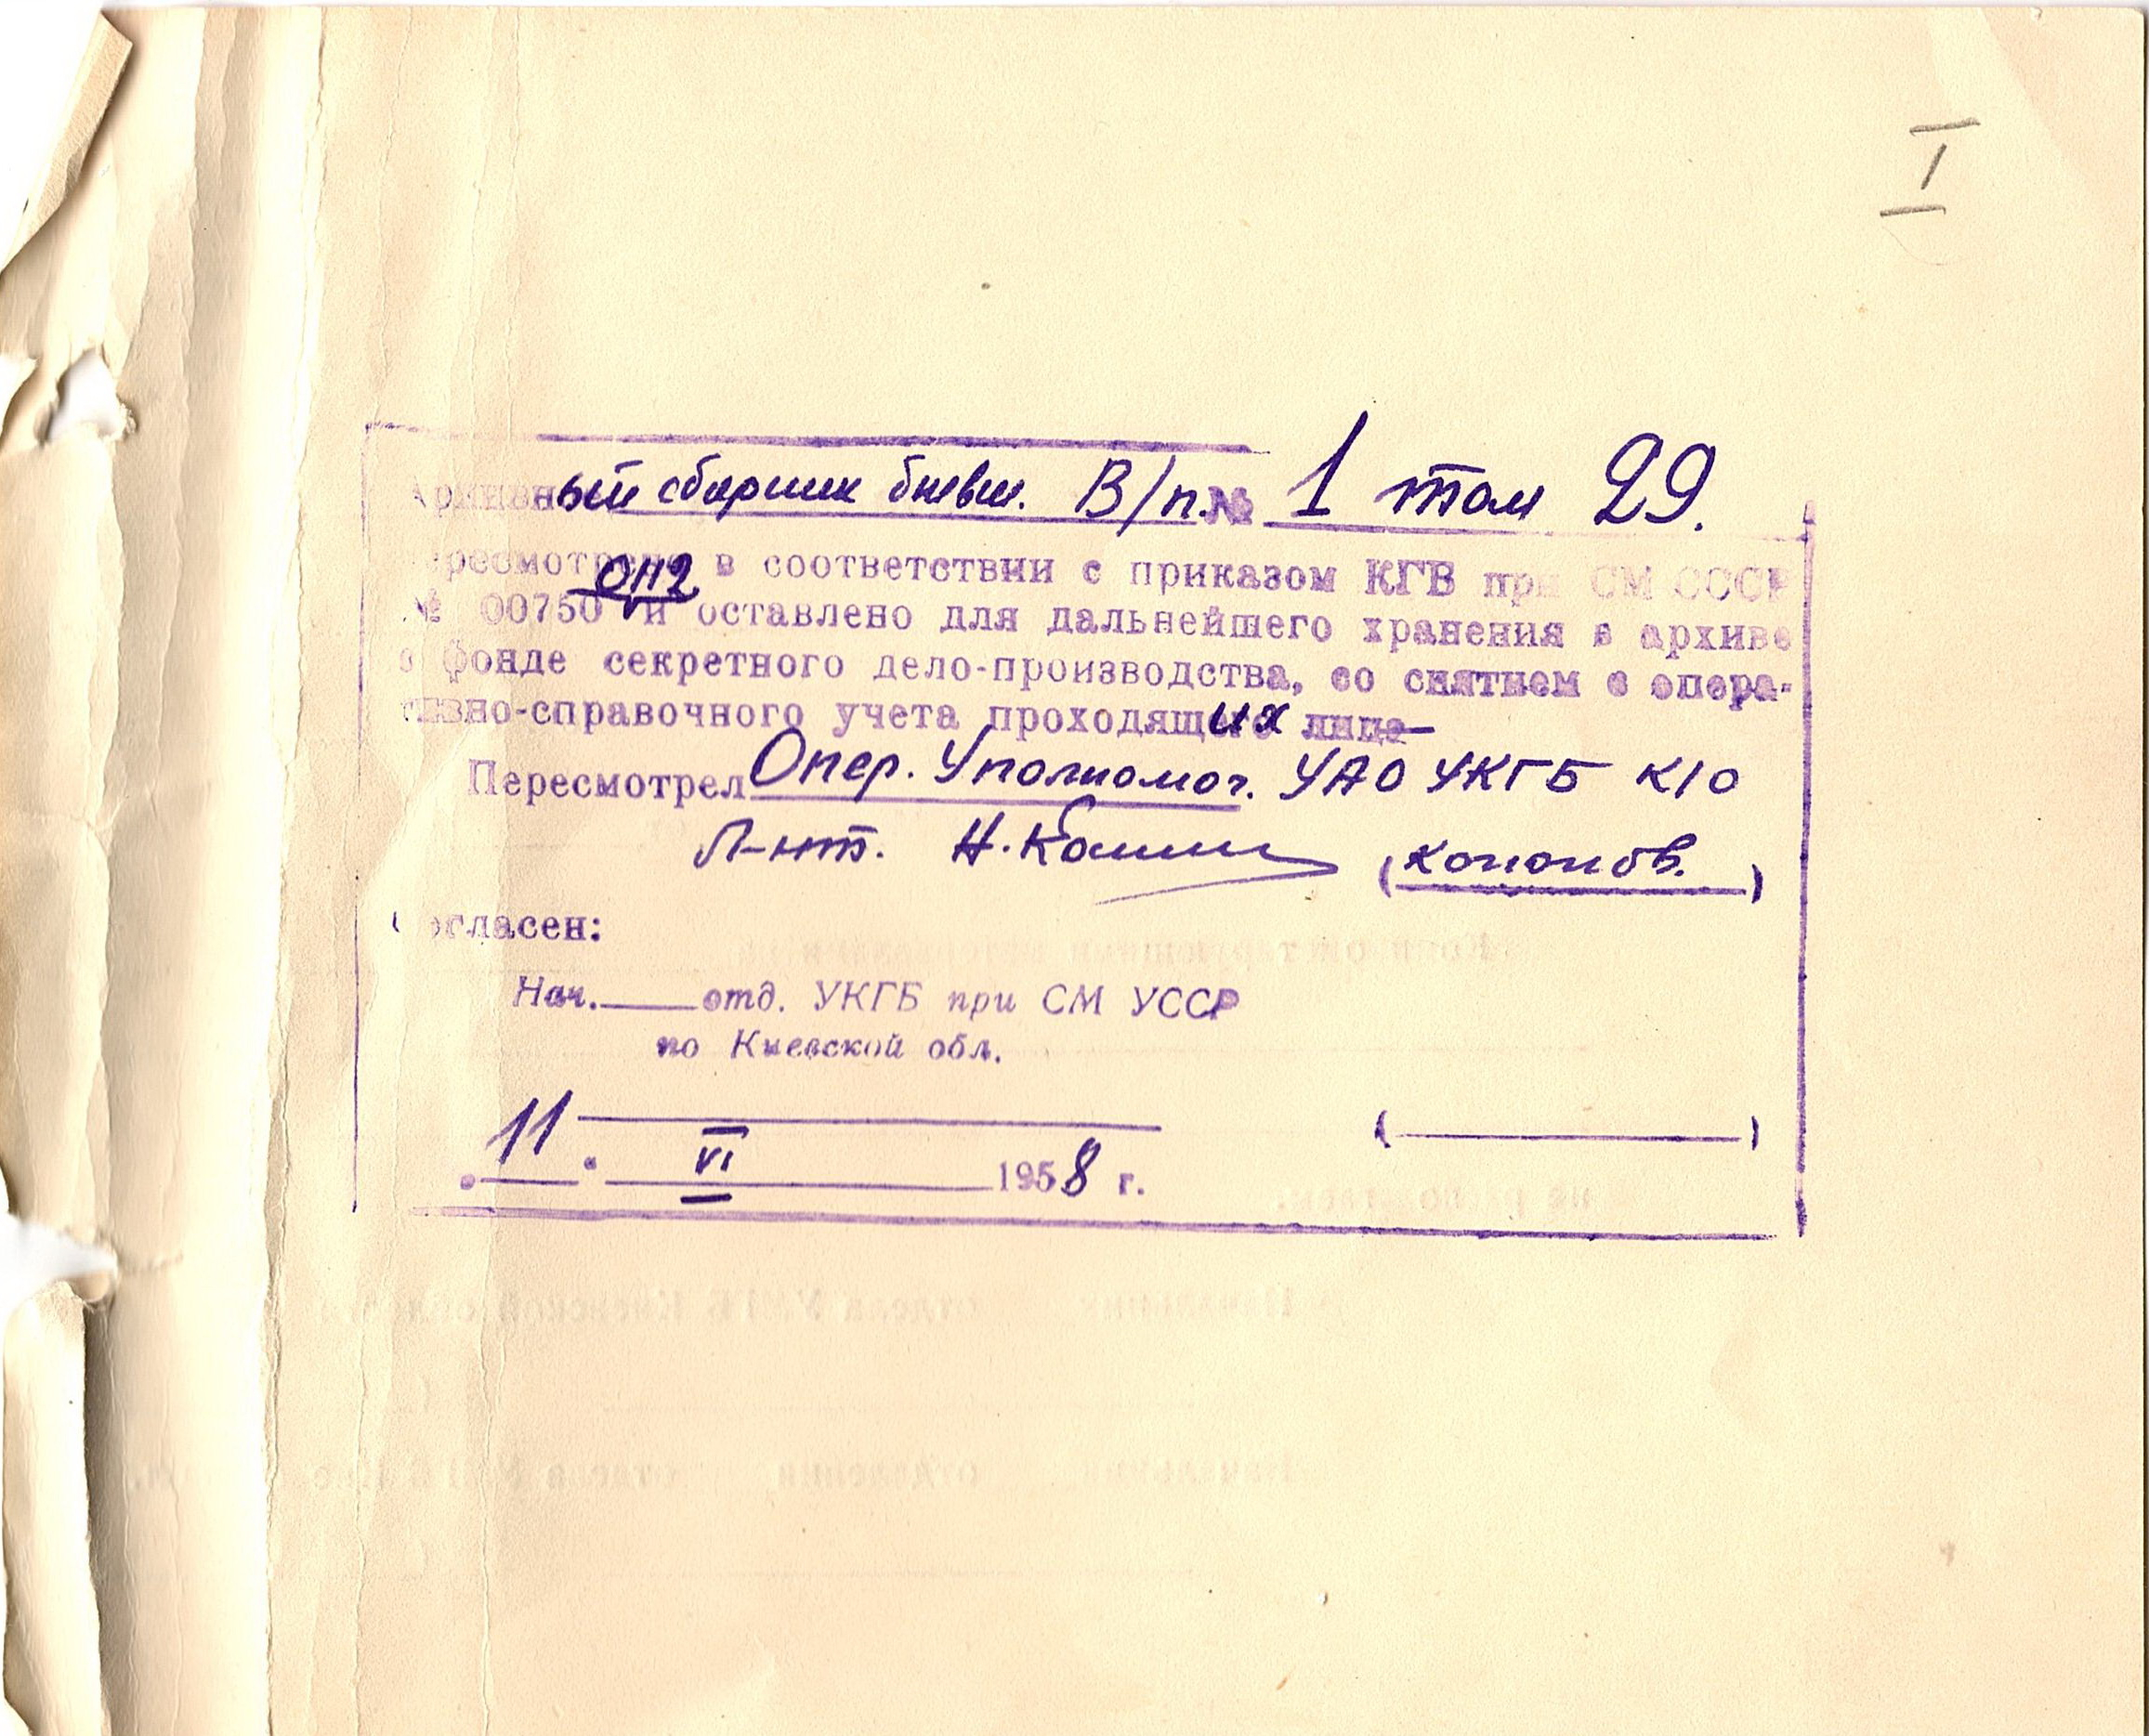 I
Архивный сборник бывш. В/п. № 1 том 29.
Пересмотрено в соответствии с приказом КГБ при СМ СССР
0112
№ 00750 и оставлено для дальнейшего хранения в архиве
в фонде секретного дело-производства, со снятием с опера-
тивно-справочного учета проходящих лиц
Пересмотрел Опер. Уполномоч. УАО УКГБ К/О
Л-нт. (Кононов.)
Согласен:
Нач. отд. УКГБ при СМ УССР
по Киевской обл.
( )
„11“ VI 1958 г.